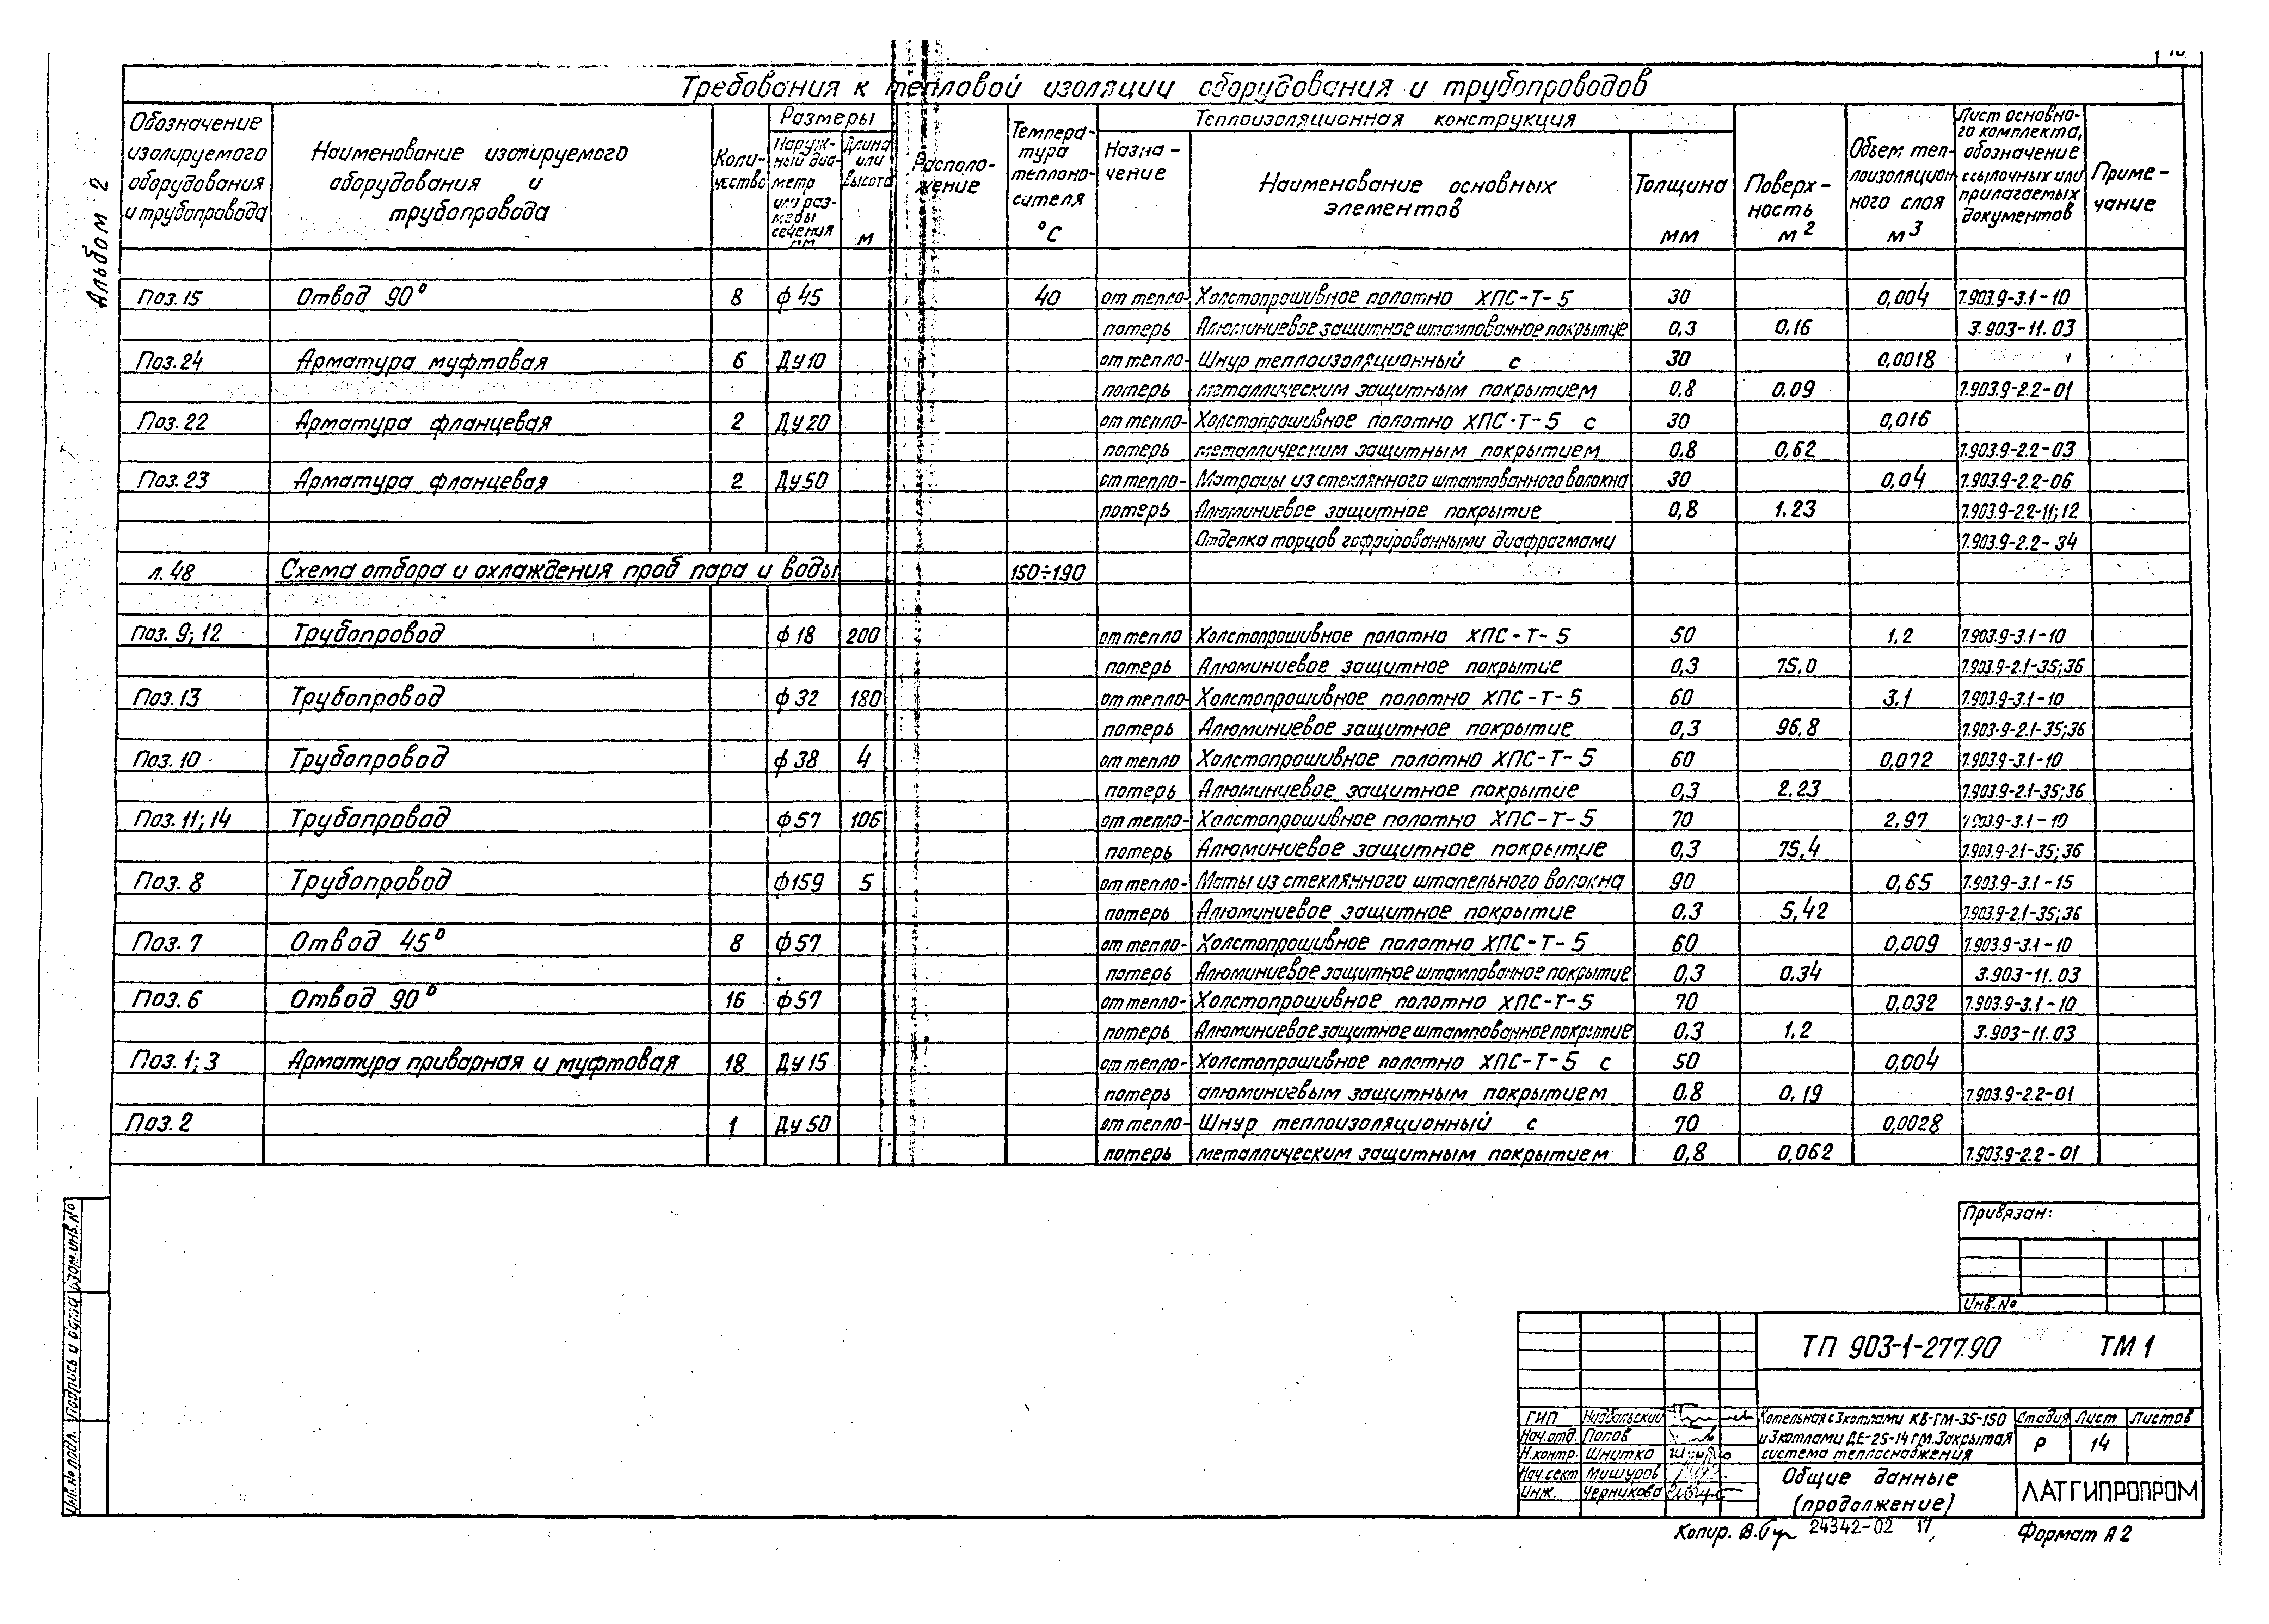 Альбом 2
Требования к тепловой изоляции оборудования и трубопроводов
Обозначение изолируемого оборудования и трубопровода
Наименование изолируемого оборудования и трубопровода
Количество
Размеры
Наружный диаметр или размеры сечения мм
Длина или высота м
Расположение
Температура теплоносителя °C
Теплоизоляционная конструкция
Назначение
Наименование основных элементов
Толщина мм
Поверхность м2
Объем теплоизоляционного слоя м3
Лист основного комплекта, обозначение ссылочных или прилагаемых документов
Примечание
Поз. 15 Отвод 90° 8 ф45 40 от тепло- Холстопрошивное полотно ХПС-Т-5 30 0,004 7.903.9-3.1-10
потерь Алюминиевое защитное штампованное покрытие 0,3 0,16 3.903-11.03
Поз. 24 Арматура муфтовая 6 Ду10 от тепло- Шнур теплоизоляционный с 30 0,0018
потерь металлическим защитным покрытием 0.8 0,09 7.903.9-2.2-01
Поз. 22 Арматура фланцевая 2 Ду20 от тепло- Холстопрошивное полотно ХПС-Т-5 с 30 0,016
потерь металлическим защитным покрытием 0.8 0,62 7.903.9-2.2-03
Поз. 23 Арматура фланцевая 2 Ду50 от тепло- Матрацы из стеклянного штампованного волокна 30 0,04 7.903.9-2.2-06
потерь Алюминиевое защитное покрытие 0,8 1.23 7.903.9-2.2-11;12
Отделка торцов гофрированными диафрагмами 7.903.9-2.2-34
л. 48 Схема отбора и охлаждения проб пара и воды 150÷190
Поз. 9; 12 Трубопровод ф18 200 от тепло Холстопрошивное полотно ХПС-Т-5 50 1.2 7.903.9-3.1-10
потерь Алюминиевое защитное покрытие 0,3 75,0 7.903.9-2.1-35;36
Поз. 13 Трубопровод ф32 180 от тепло- Холстопрошивное полотно ХПС-Т-5 60 3.1 7.903.9-3.1-10
потерь Алюминиевое защитное покрытие 0,3 96,8 7.903.9-2.1-35;36
Поз. 10 Трубопровод ф38 4 от тепло Холстопрошивное полотно ХПС-Т-5 60 0,072 7.903.9-3.1-10
потерь Алюминиевое защитное покрытие 0,3 2.23 7.903.9-2.1-35;36
Поз. 11; 14 Трубопровод ф57 106 от тепло- Холстопрошивное полотно ХПС-Т-5 70 2,97 7.903.9-3.1-10
потерь Алюминиевое защитное покрытие 0,3 75,4 7.903.9-2.1-35;36
Поз. 8 Трубопровод ф159 5 от тепло- Маты из стеклянного штапельного волокна 90 0,65 7.903.9-3.1-15
потерь Алюминиевое защитное покрытие 0.3 5,42 7.903.9-2.1-35;36
Поз. 7 Отвод 45° 8 ф57 от тепло- Холстопрошивное полотно ХПС-Т-5 60 0,009 7.903.9-3.1-10
потерь Алюминиевое защитное штампованное покрытие 0,3 0.34 3.903-11.03
Поз. 6 Отвод 90° 16 ф57 от тепло- Холстопрошивное полотно ХПС-Т-5 70 0,032 7.903.9-3.1-10
потерь Алюминиевое защитное штампованное покрытие 0.3 1.2 3.903-11.03
Поз. 1; 3 Арматура приварная и муфтовая 18 Ду15 от тепло- Холстопрошивное полотно ХПС-Т-5 с 50 0,004
потерь алюминиевым защитным покрытием 0.8 0,19 7.903.9-2.2-01
Поз. 2 1 Ду50 от тепло- Шнур теплоизоляционный с 70 0,0028
потерь металлическим защитным покрытием 0,8 0,062 7.903.9-2.2-01
Привязан:
Инв. №
ТП 903-1-277.90 ТМ 1
ГИП Нидбальский
Нач. отд. Попов
Н. контр. Шнитко
Нач. сект Мишуров
Инж. Черникова
Котельная с 3 котлами КВ-ГМ-35-150
и 3 котлами ДЕ-25-14 ГМ. Закрытая
система теплоснабжения
Стадия Лист Листов
Р 14
Общие данные
(продолжение)
ЛАТГИПРОПРОМ
Копир. 24342-02 17 Формат А2
Инв. № подл. Подпись и дата Взам. инв. №